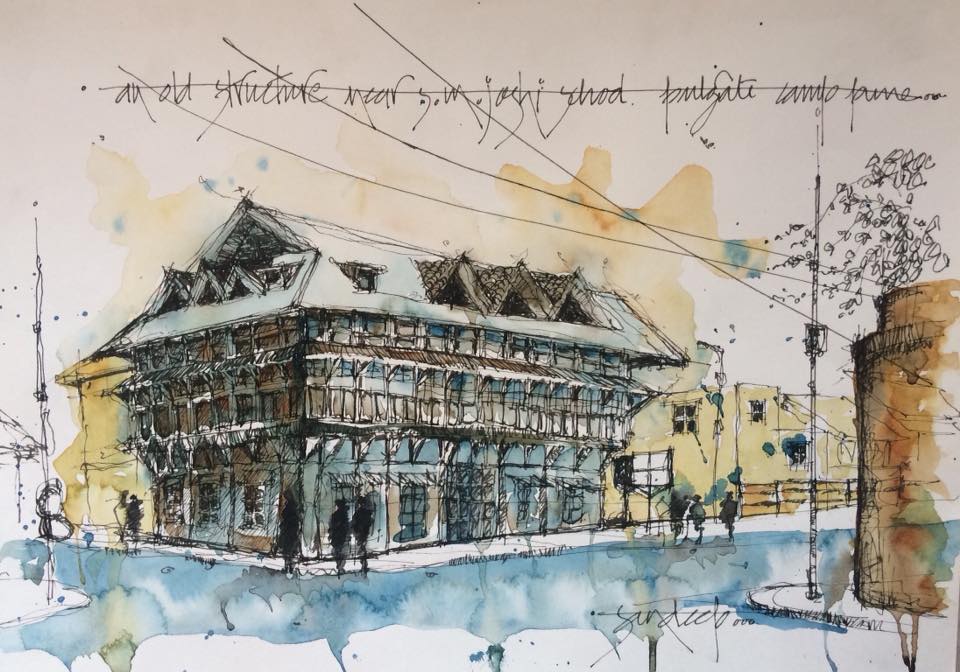 an old structure near s.m. joshi school. pulgate camp pune...
sandeep...